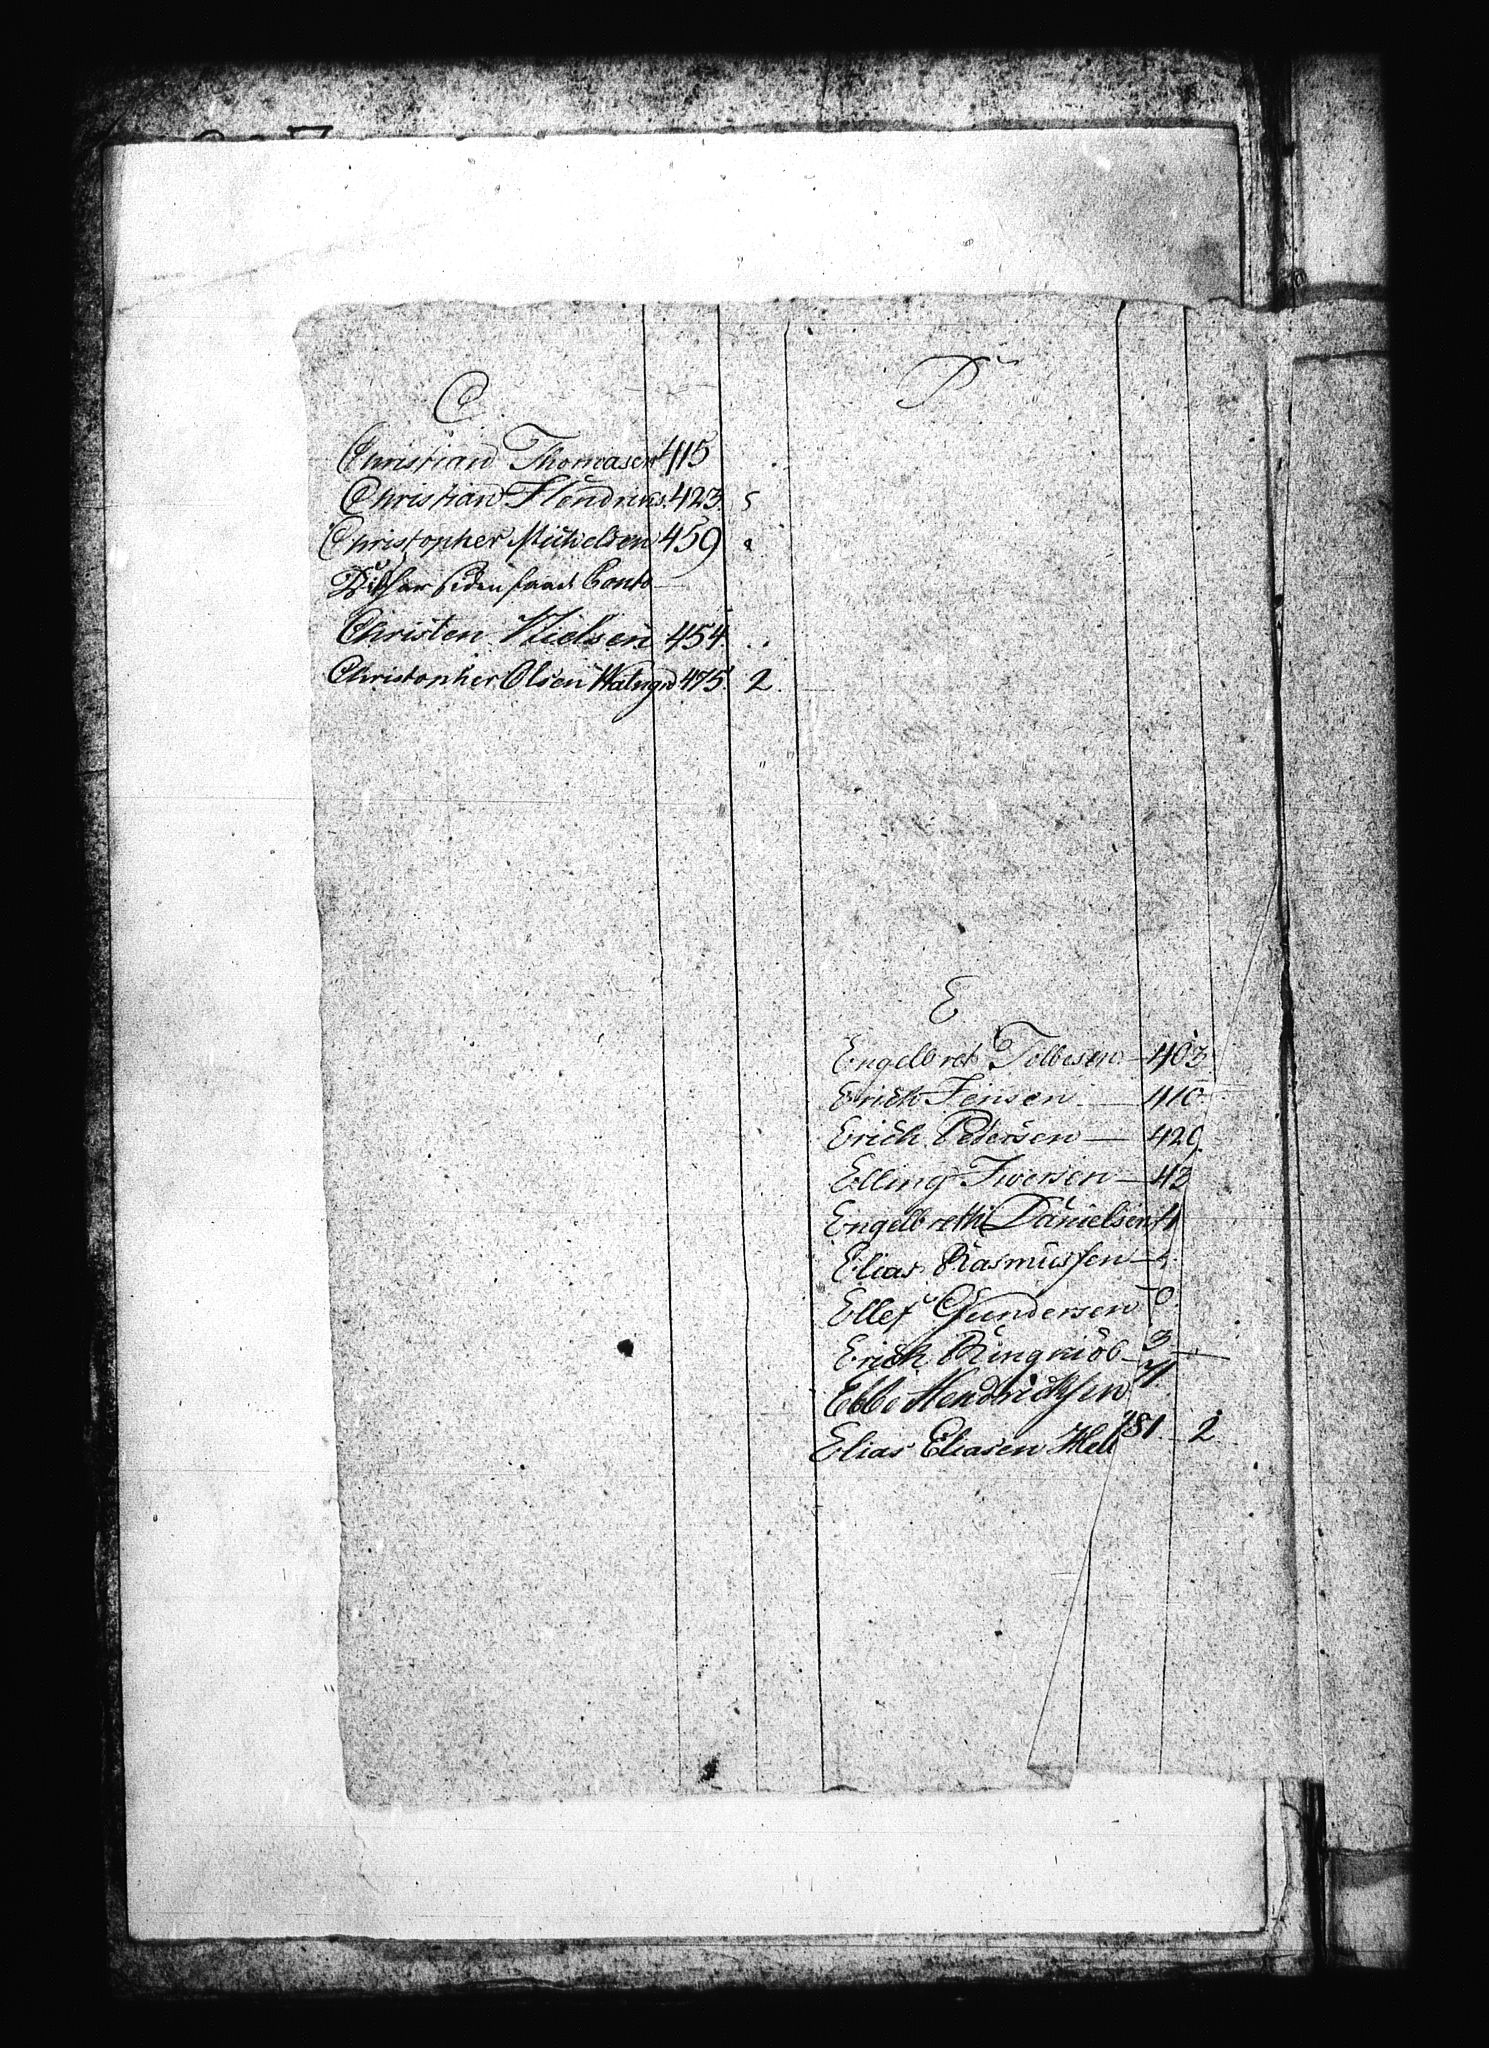 C.
Christian Thomasen 415
Christian Hendrichs. 423. 5
Christopher Michelsen 459
har siden faaet Conto
Christen Nielsen 454.
Christopher Olsen 475. 2.
D
E
Engelbret Tollesen — 403
Erich Jensen — 410
Erich Pedersen — 429
Elling Iversen — 43
Engelbreth Danielsen
Elias Rasmussen
Ellef Gundersen
Erich Ringkiöb
Ebbe Hendrichsen
Elias Eliasen 481. 2